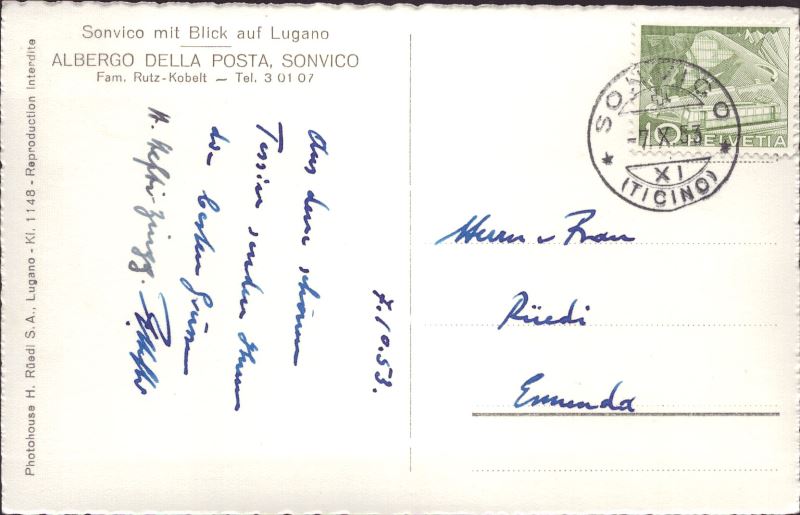 Sonvico mit Blick auf Lugano
ALBERGO DELLA POSTA, SONVICO
Fam. Rutz-Kobelt — Tel. 3 01 07
Photohouse H. Rüedi S. A., Lugano - Kl. 1148 - Reproduction Interdite
7.10.53.
Aus dem schönen
Tessin senden Ihnen
die besten Grüsse
H. Hefti-Zingg.
Herrn u Frau
Rüedi
Ennenda
SONVICO
-7.X.53
XI
(TICINO)
10 HELVETIA